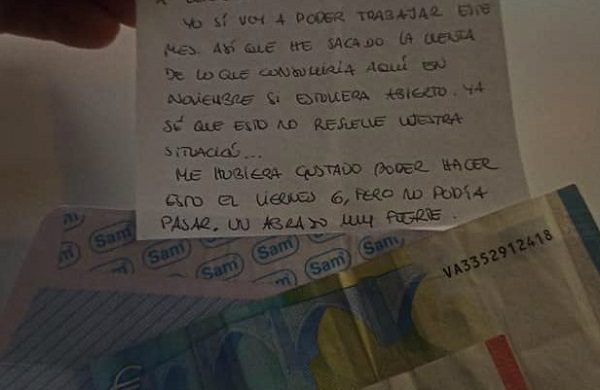 YO SÍ VOY A PODER TRABAJAR ESTE
MES. ASÍ QUE HE SACADO LA CUENTA
DE LO QUE CONSUMIRÍA AQUÍ EN
NOVIEMBRE SI ESTUVIERA ABIERTO. YA
SÉ QUE ESTO NO RESUELVE VUESTRA
SITUACIÓN...
ME HUBIERA GUSTADO PODER HACER
ESTO EL VIERNES 6, PERO NO PODÍA
PASAR. UN ABRAZO MUY FUERTE.
Sam Sam Sam
Sam Sam Sam
VA3352912418